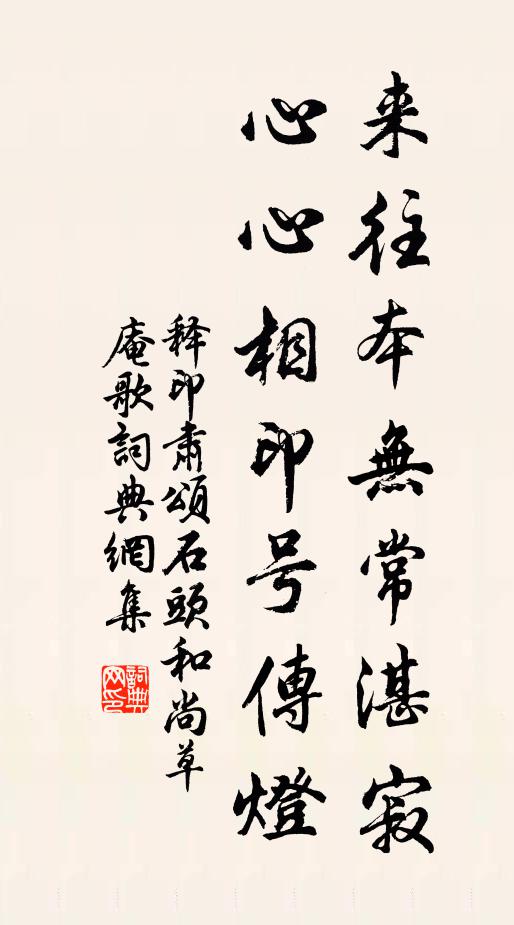 来往本無常湛寂
心心相印号傳燈
释印肃頌石頭和尚草
庵歌詞典網集
詞典
网印